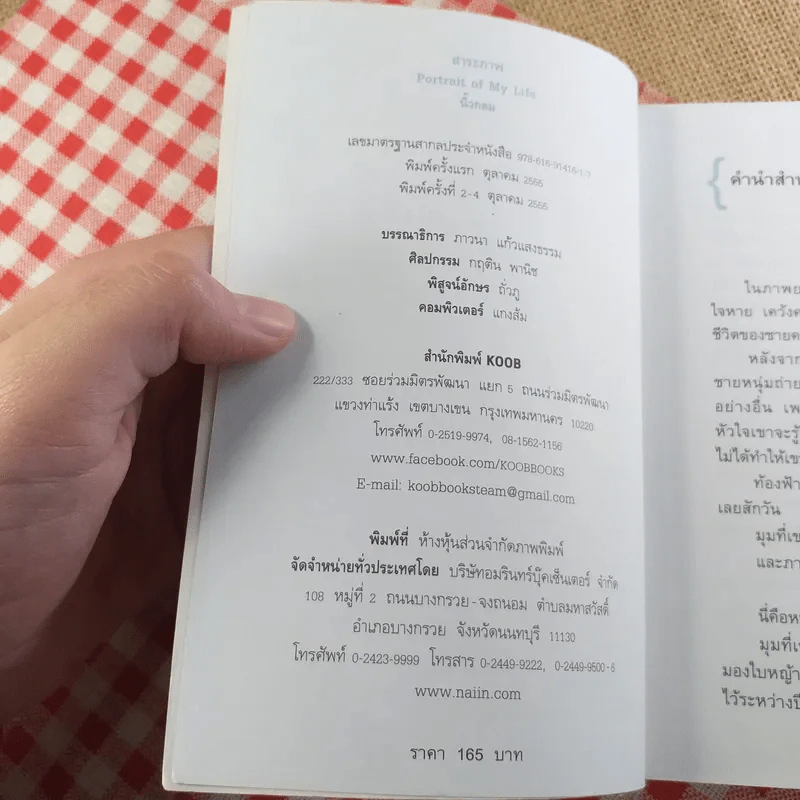 สาระภาพ
Portrait of My Life
นิ้วกลม
เลขมาตรฐานสากลประจำหนังสือ 978-616-91416-1-7
พิมพ์ครั้งแรก ตุลาคม 2555
พิมพ์ครั้งที่ 2-4 ตุลาคม 2555
บรรณาธิการ ภาวนา แก้วแสงธรรม
ศิลปกรรม กฤติน พานิช
พิสูจน์อักษร ถั่วภู
คอมพิวเตอร์ แกงส้ม
สำนักพิมพ์ KOOB
222/333 ซอยร่วมมิตรพัฒนา แยก 5 ถนนร่วมมิตรพัฒนา
แขวงท่าแร้ง เขตบางเขน กรุงเทพมหานคร 10220
โทรศัพท์ 0-2519-9974, 08-1562-1156
www.facebook.com/KOOBBOOKS
E-mail: koobbooksteam@gmail.com
พิมพ์ที่ ห้างหุ้นส่วนจำกัดภาพพิมพ์
จัดจำหน่ายทั่วประเทศโดย บริษัทอมรินทร์บุ๊คเซ็นเตอร์ จำกัด
108 หมู่ที่ 2 ถนนบางกรวย-จงถนอม ตำบลมหาสวัสดิ์
อำเภอบางกรวย จังหวัดนนทบุรี 11130
โทรศัพท์ 0-2423-9999 โทรสาร 0-2449-9222, 0-2449-9500-6
www.naiin.com
ราคา 165 บาท
{ คำนำสำน
ในภาพย
ใจหาย เคว้งค
ชีวิตของชายค
หลังจาก
ชายหนุ่มถ่าย
อย่างอื่น เพ
หัวใจเขาจะรู้
ไม่ได้ทำให้เข
ท้องฟ้า
เลยสักวัน
มุมที่เข
และภา
นี่คือห
มุมที่เ
มองใบหญ้า
ไว้ระหว่างปี